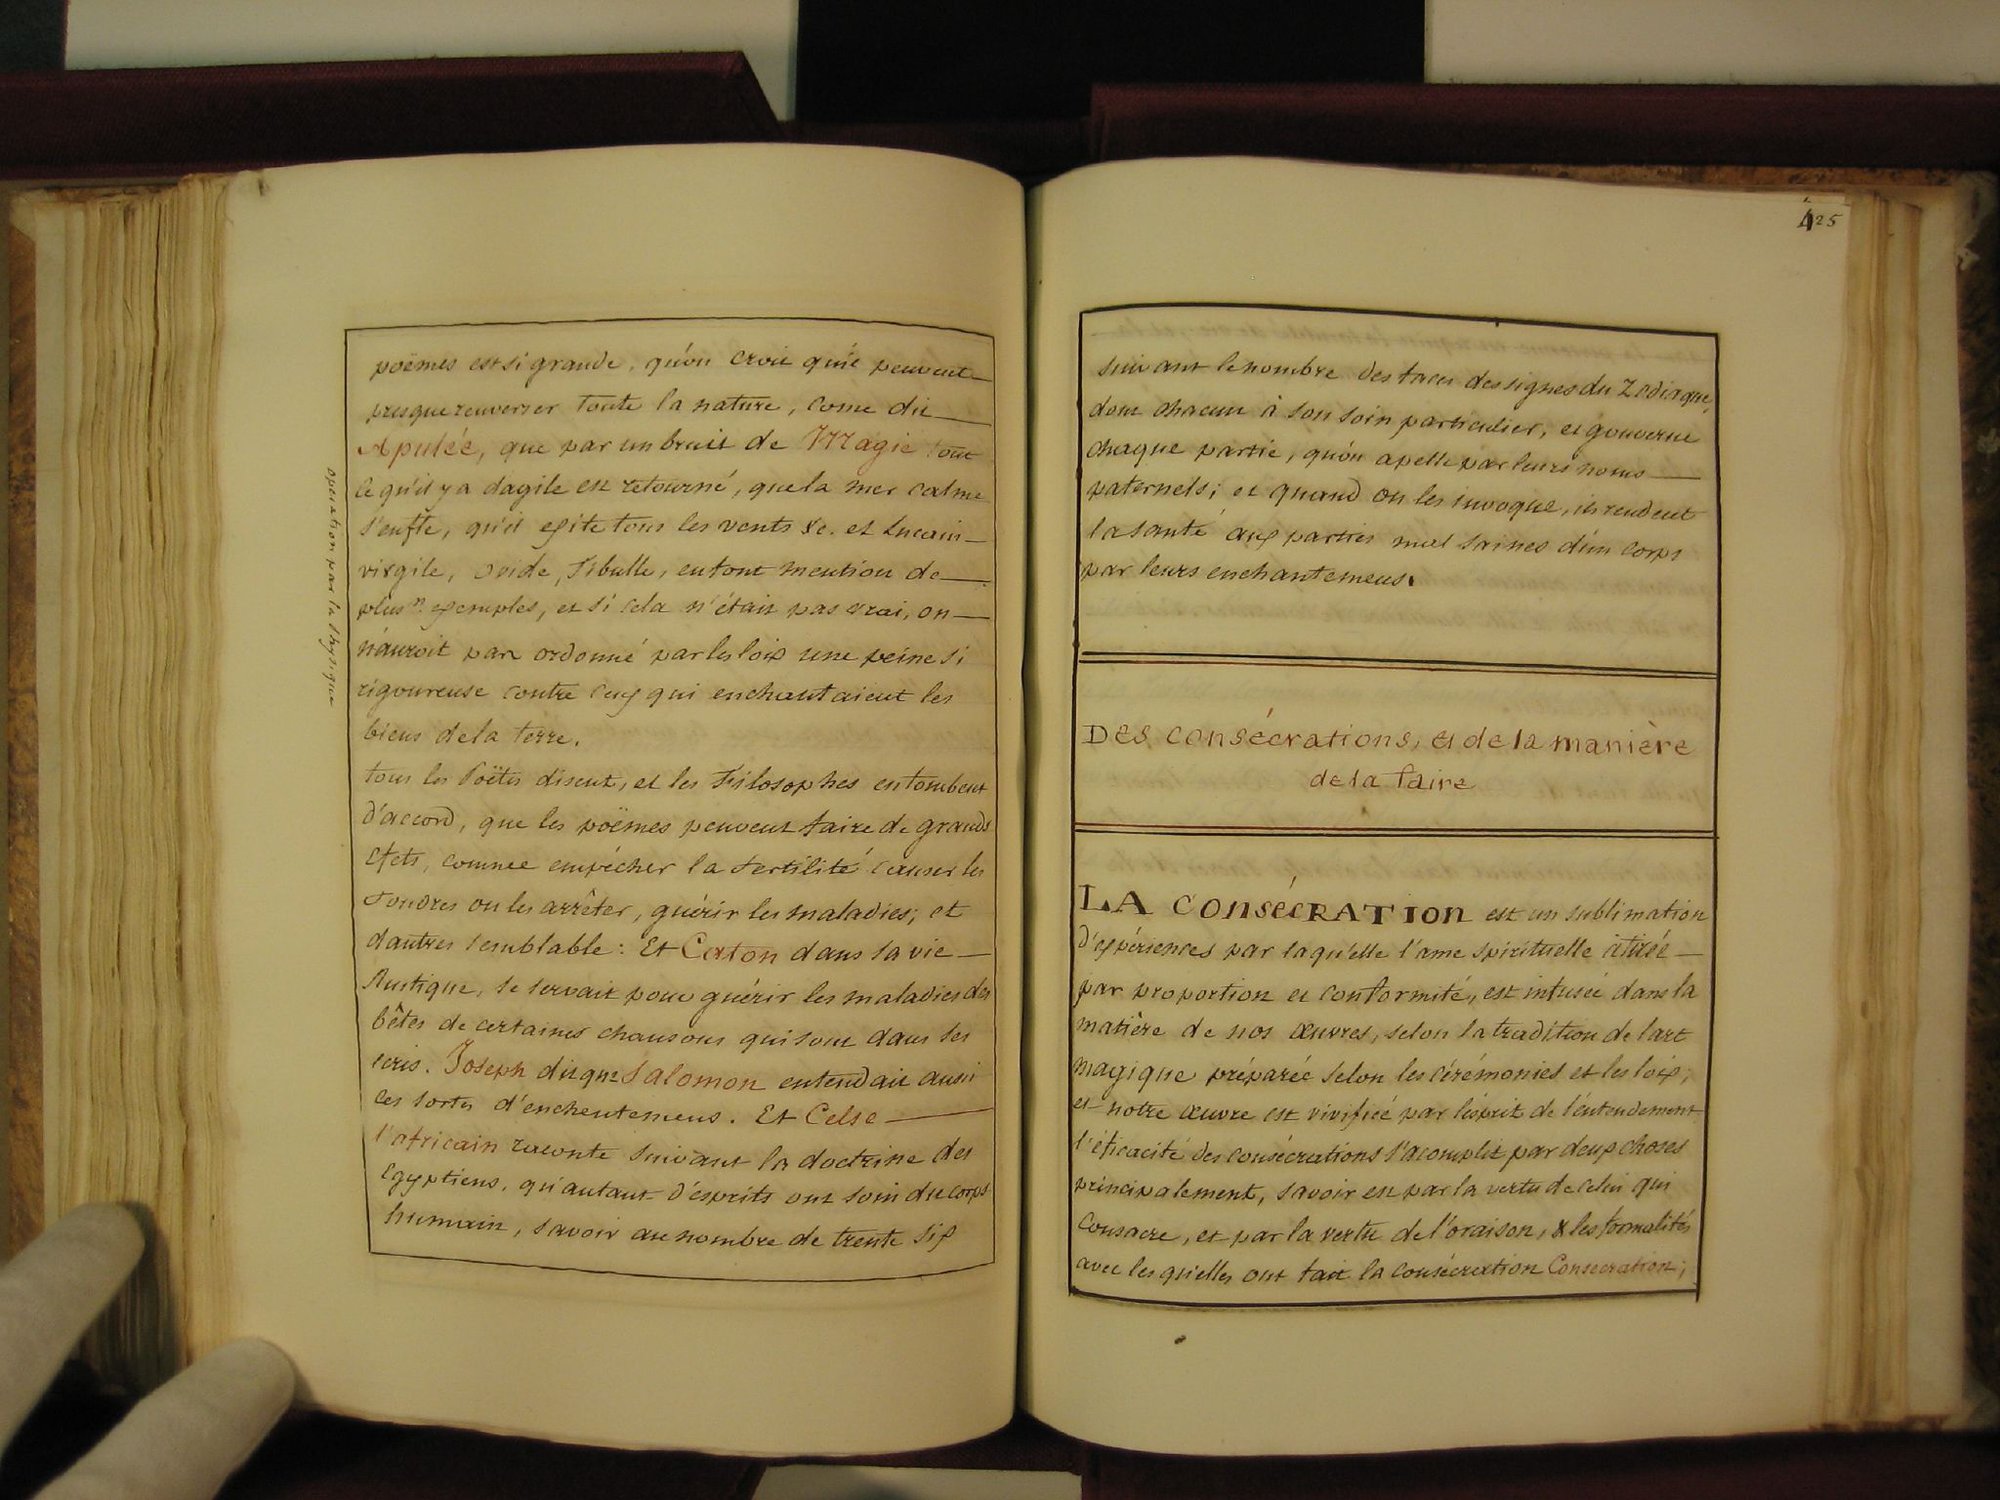 poëmes est si grande, qu'on croit qu'ie peuvent
presque renverser toute la nature, come dit
Apulée, que par un bruit de Magie tout
ce qu'il y a dagile est retourné, que la mer calme
s'enfle, qu'il exite tous les vents &c. et Lucain
virgile, ovide, Tibulle, en font mention de
plus.rs exemples, et si cela n'était pas vrai, on
n'auroit pas ordonné par les loix une peine si
rigoureuse contre ceux qui enchantaient les
biens de la terre.
tous les Poëtes disent, et les Filosophes en tombent
d'accord, que les poëmes peuvent faire de grands
éfets, comme empêcher la fertilité causer les
foudres ou les arrêter, guérir les maladies; et
dautres semblable: Et Caton dans sa vie
Rustique, se servait pour guérir les maladies des
bêtes de certaines chansons qui sont dans ses
écris. Joseph dit que Salomon entendait aussi
ces sortes d'enchentemens. Et Celse
l'africain raconte suivant la doctrine des
Egyptiens, qu'autant d'ésprits ont soin du corps
humain, savoir au nombre de trente six
opération par la Physique
425
suivant le nombre des faces des signes du Zodiaque,
dont chacun à son soin particulier, et gouverne
chaque partie, qu'on apelle par leurs noms
paternels; et quand on les invoque, ils rendent
la santé aux parties mal saines d'un corps
par leurs enchantemens.
DES consécrations, et de la manière
de la faire
LA conséCRATIon est un sublimation
d'expériences par laqu'elle l'ame spirituelle atirée
par proportion et conformité, est infusée dans la
matière de nos œuvres, selon la tradition de lart
magique préparée selon les cérémonies et les loix;
et notre œuvre est vivifiée par l'ésprit de l'éntendement
l'éficacité des consécrations s'acomplit par deux choses
principalement, savoir est par la vertu de celui qui
consacre, et par la vertu de l'oraison, & les formalités
avec les qu'elles ont fait la consécration Consecration;